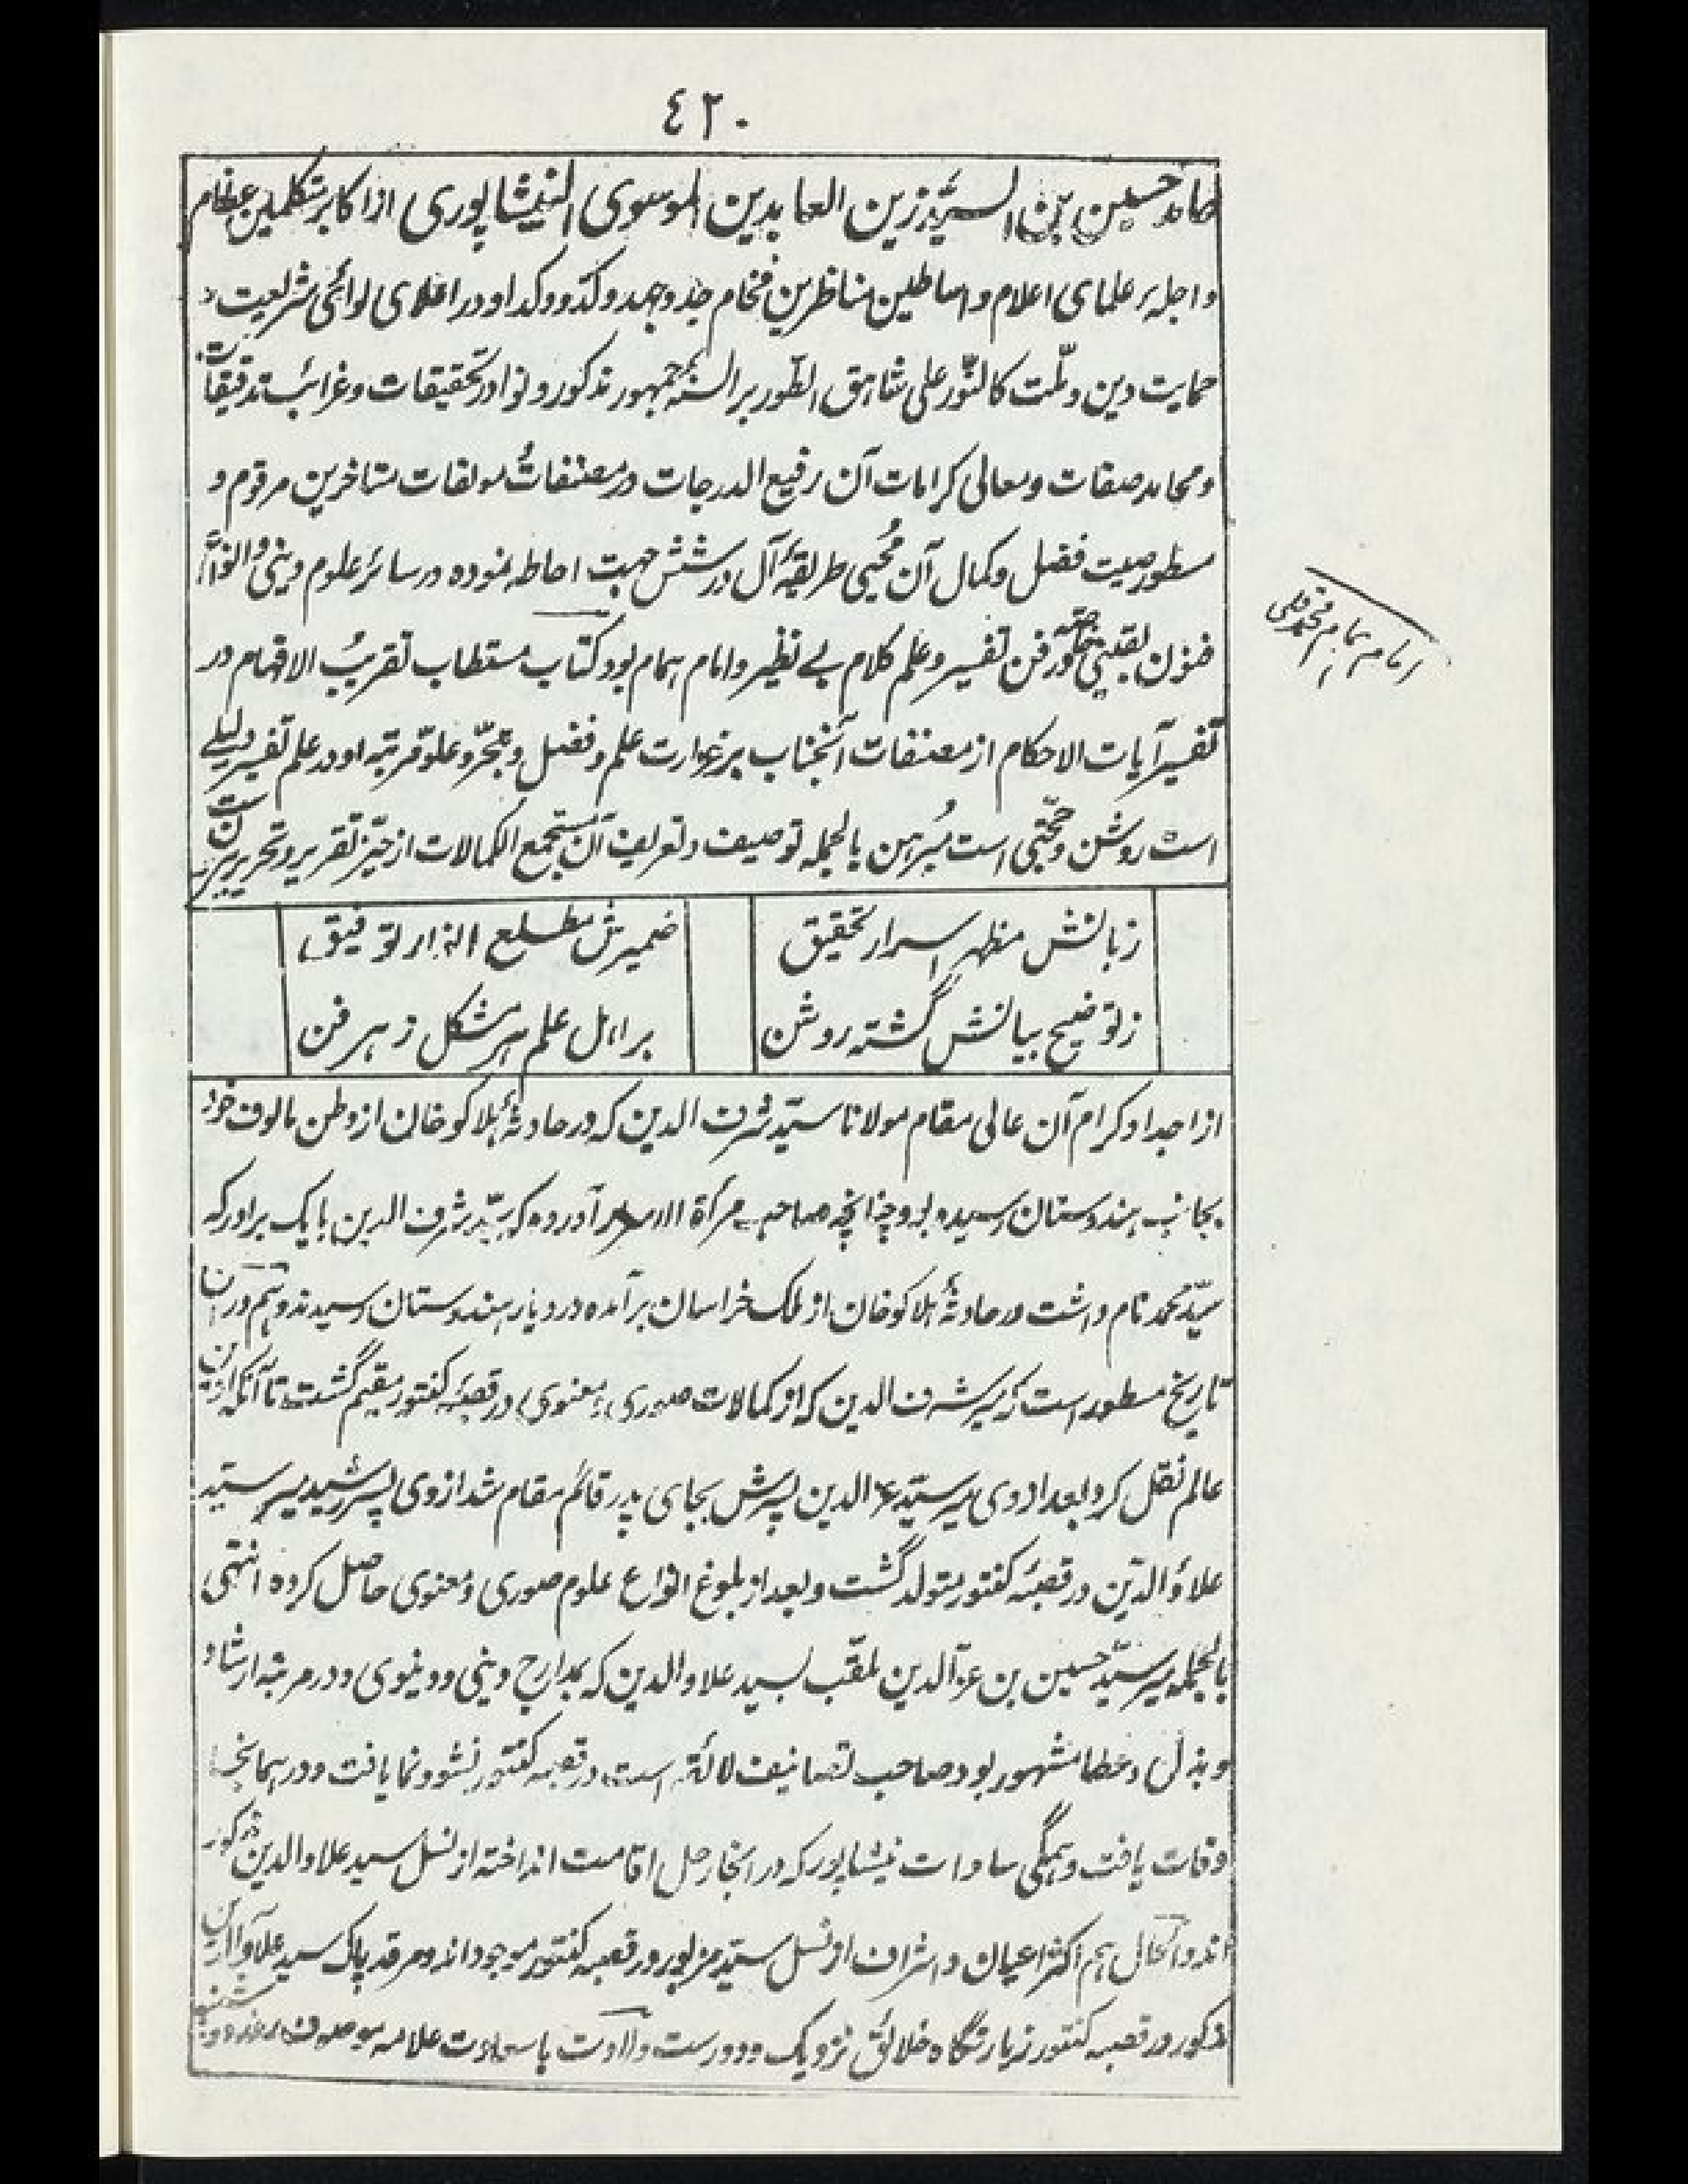 ٤٢٠
حامد حسین بن السیّد زین العابدین الموسوی النیشاپوری از اکابر متکلمین عظام
و اجلۀ علمای اعلام و اساطین مناظرین فخام جدّ و جهد و کدّ و وکد او در اعلای لوائی شریعت و
حمایت دین و ملّت کالنّور علی شاهق الطّور بر السنۀ جمهور مذکور و نوادر تحقیقات و غرائب تدقیقات
و محامد صفات و معالی کرامات آن رفیع الدرجات در مصنفات و مولفات متاخرین مرقوم و
مسطور صیت فضل و کمال آن مُحیی طریقۀ آل در شش جهت احاطه نموده در سائر علوم دینی و انواع
فنون یقینی خصوصا در فن تفسیر و علم کلام بے نظیر و امام همام بود کتاب مستطاب تقریبُ الافهام در
تفسیر آیات الاحکام از مصنفات آنجناب بر غزارت علم و فضل و تبحّر و علوّ مرتبه او در علم تفسیر دلیلے
است روشن و حجّتی است مُبرهن بالجمله توصیف و تعریف آن مستجمع الکمالات از حیّز تقریر و تحریر بیرون ست
زبانش مظهر اسرار تحقیق
ضمیرش مطلع انوار توفیق
ز توضیح بیانش گشته روشن
بر اهل علم هر مشکل ز هر فن
از اجداد کرام آن عالی مقام مولانا سیّد شرف الدین که در حادثۀ هلاکو خان از وطن مالوف خود
بجانب هندوستان رسیده بود چنانچه صاحب مرأة الاسرار آورده که سیّد شرف الدین با یک برادر که
سیّد محمد نام داشت در حادثۀ هلاکو خان از ملک خراسان برآمده در دیار هندوستان رسیدند و هم در آن
تاریخ مسطور است که میر شرف الدین که از کمالات صوری و معنوی در قصبۀ کنتور مقیم گشت تا آنکه ازین
عالم نقل کرد بعد از وی میر سیّد عز الدین پسرش بجای پدر قائم مقام شد از وی پسر رشید میر سیّد
علاؤ الدّین در قصبۀ کنتور متولد گشت و بعد از بلوغ انواع علوم صوری و معنوی حاصل کرده انتهی
بالجمله میر سیّد حسین بن عزّ الدین ملقّب بسید علاو الدین که بمدارج دینی و دنیوی و در مرتبۀ ارشاد
و بذل و عطا مشهور بود صاحب تصانیف لائقه است در قصبه کنتور نشو و نما یافت و در همانجا
وفات یافت و همگی سادات نیشاپور که در انجا رحل اقامت انداخته از نسل سید علاو الدین مذکور
اند و الحال هم اکثر اعیان و اشراف از نسل سیّد مزبور در قصبه کنتور موجود اند و مرقد پاک سید علاو الدین
مذکور در قصبه کنتور زیارتگاه خلائق نزدیک و دورست ولادت باسعادت علامه موصوف
امام همام محمد قلی